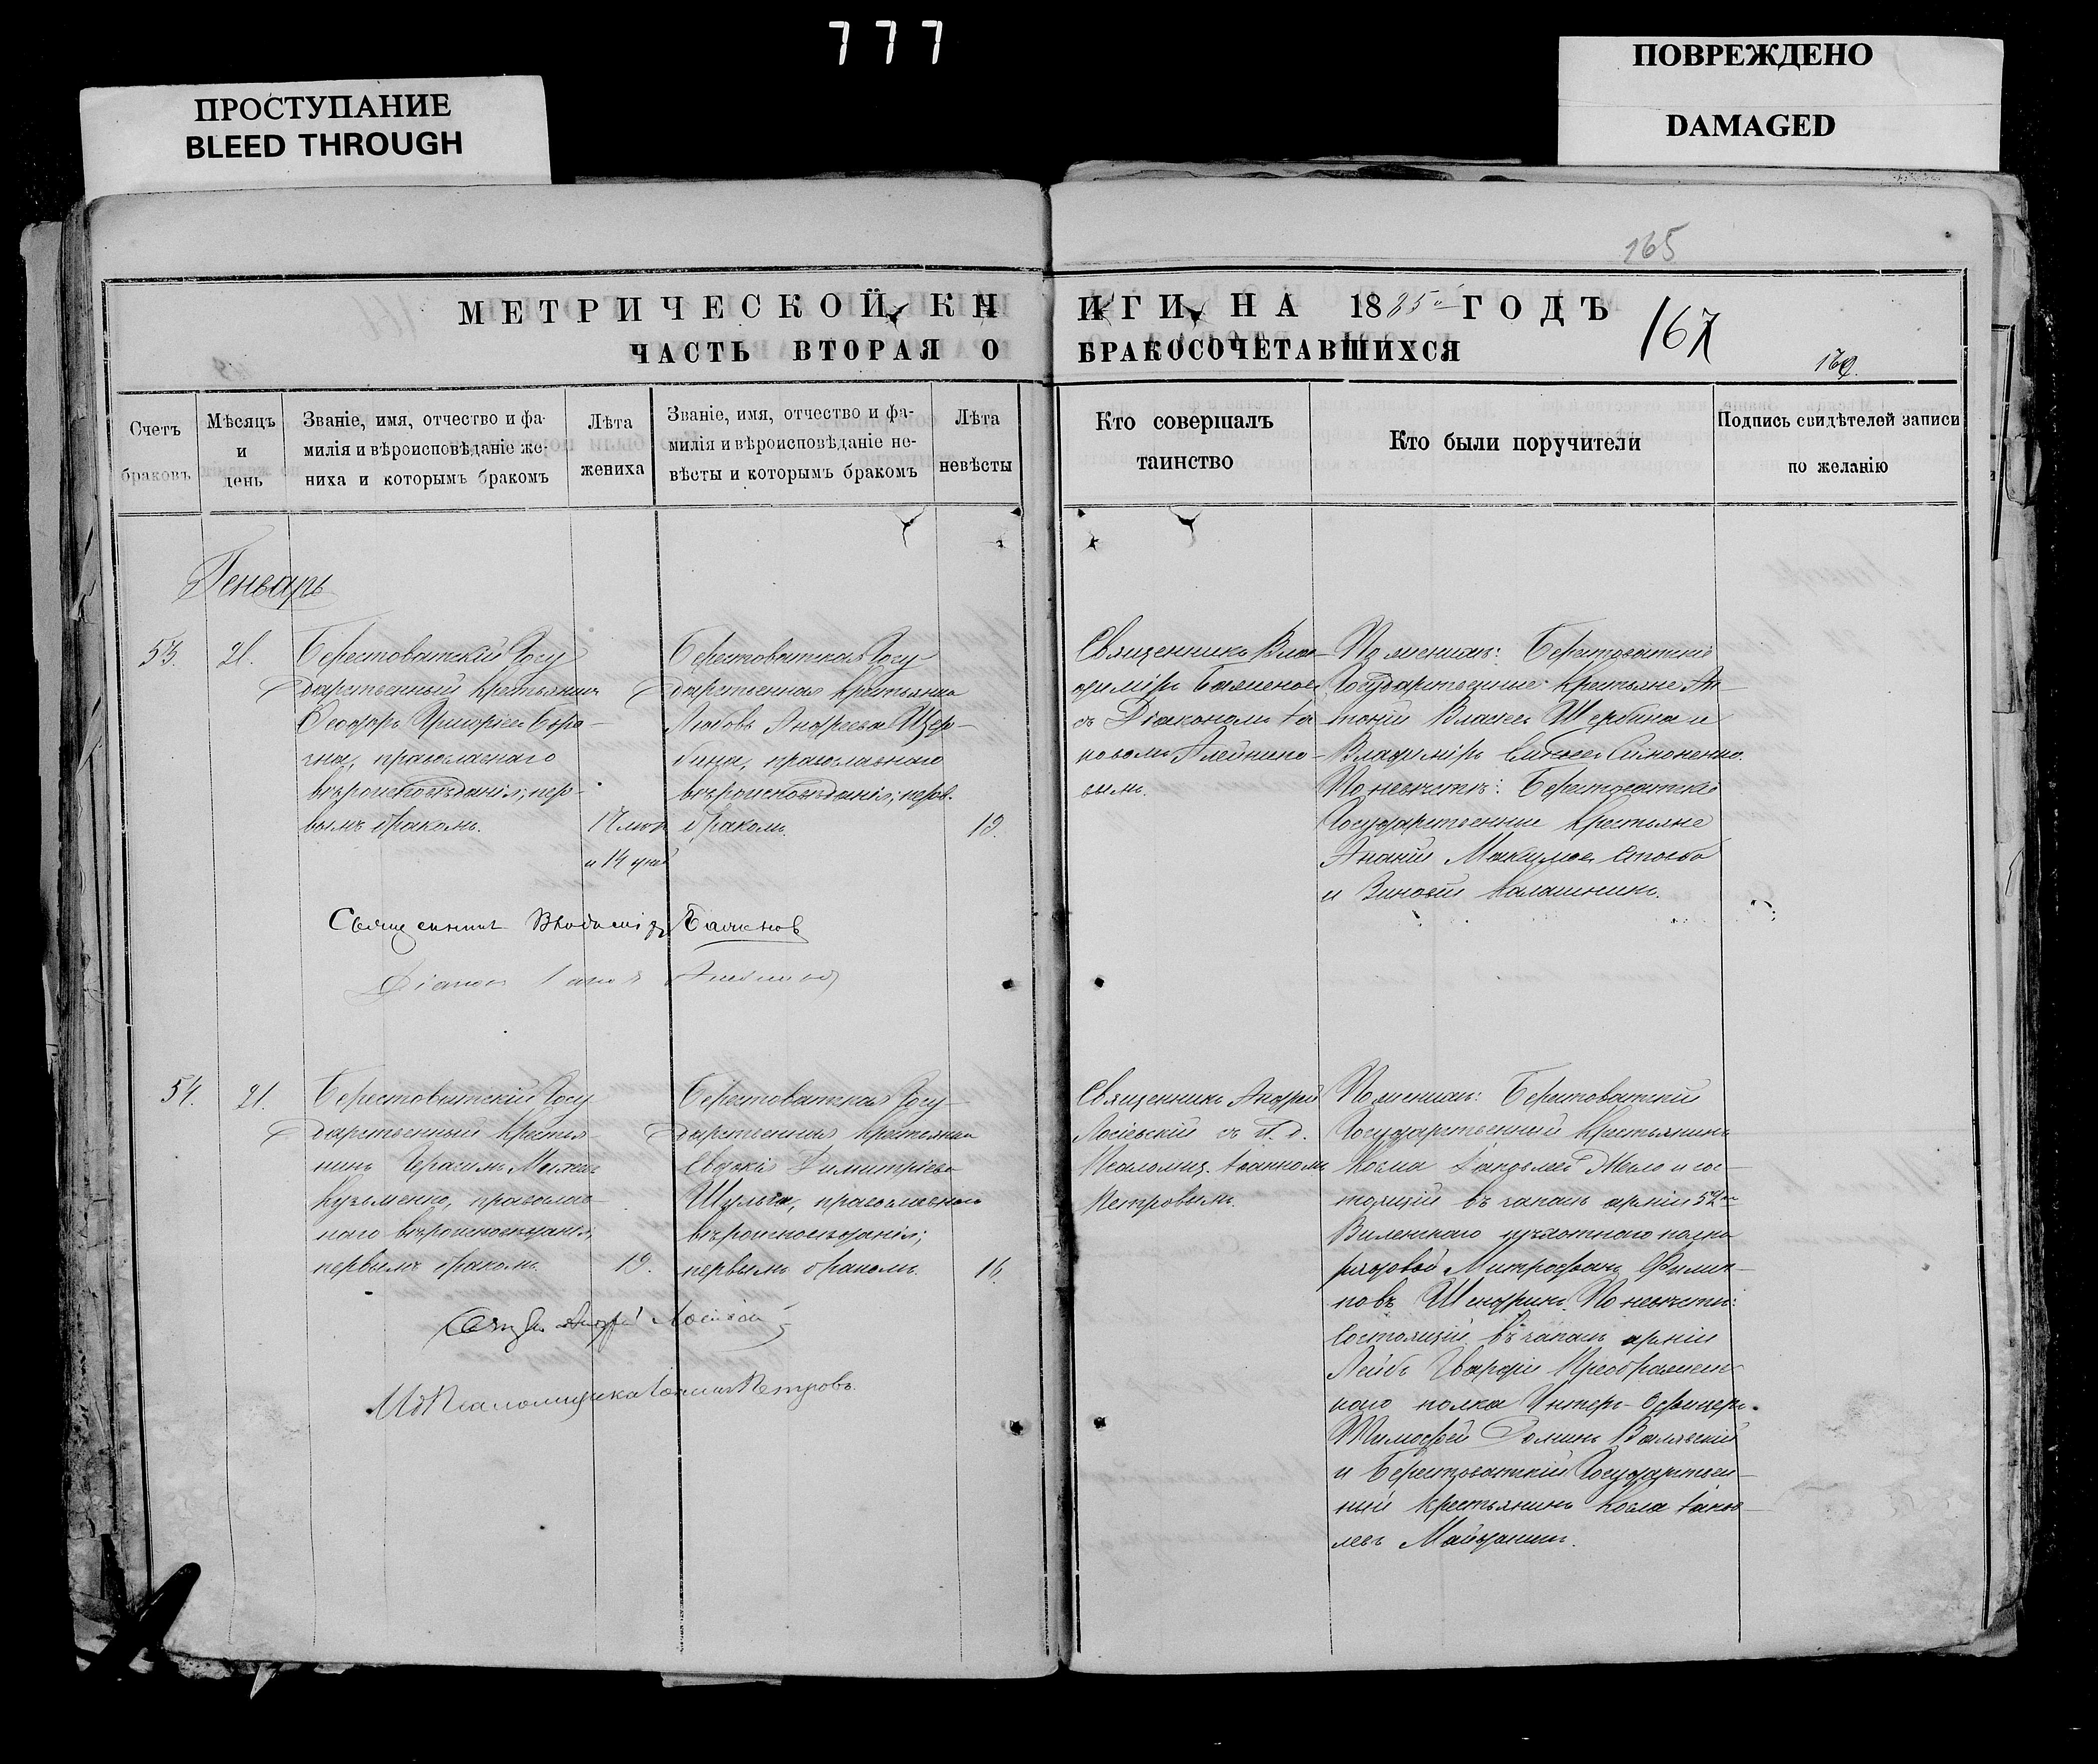 777
ПРОСТУПАНИЕ
BLEED THROUGH
ПОВРЕЖДЕНО
DAMAGED
165
МЕТРИЧЕСКОЙ КНИГИ НА 1885й ГОДЪ
167
ЧАСТЬ ВТОРАЯ О БРАКОСОЧЕТАВШИХСЯ
Счетъ браковъ
Мѣсяцъ и день
Званіе, имя, отчество и фа-
милія и вѣроисповѣданіе же-
ниха и которымъ бракомъ
Лѣта
жениха
Званіе, имя, отчество и фа-
милія и вѣроисповѣданіе не-
вѣсты и которымъ бракомъ
Лѣта
невѣсты
Кто совершалъ
таинство
Кто были поручители
Подпись свидѣтелей записи
по желанію
Генварь
53.
21.
Берестоватскій Госу
дарственный крестьянинъ
Ѳеодоръ Григоріев
православнаго
вѣроисповѣданія, пер-
вымъ бракомъ.
и 14 дней
Берестоватская Госу-
дарственная крестьянка
Любовь Андреева Щер-
бина, православнаго
вѣроисповѣданія, перв.
бракомъ.
19.
Священникъ Вла-
димiръ Баженов
съ Діакономъ Іа-
ковомъ Алейнико-
вымъ.
По женихѣ: Берестоватскіе
Государственные крестьяне Ан-
тоній Власiев Щербина и
Владиміръ Симоненко.
По невѣстѣ: Берестоватскіе
Государственные крестьяне
Ананій Максимов
и Зиновій Калашник.
Священникъ Владиміръ Баженов
Діакон Іаков Алейников
54.
21.
Берестоватскій Госу
дарственный крестья-
нинъ Герасимъ
Кузьменко, православ-
наго вѣроисповѣданія,
первымъ бракомъ.
19.
Берестоватская Госу-
дарственная крестьянка
Евдокія Димитріева
Шульга, православнаго
вѣроисповѣданія;
первымъ бракомъ.
16.
Священникъ Андрей
Лосіевскій съ И. д.
Псаломщ. Іоанномъ
Петровымъ.
По женихѣ: Берестоватскій
Государственный крестьянинъ
Козма Іаковлев и сос-
тоящій въ запасѣ арміи 52го
Виленскаго пѣхотнаго полка
рядовой Митрофанъ Филип-
повъ По невѣстѣ:
Состоящій въ запасѣ арміи
Лейбъ Гвардіи Преображен-
скаго полка Унтеръ-Офицеръ
Тимофей
и Берестоватскій Государствен-
ный крестьянинъ Козма Іаков-
левъ
Священ. Андрей Лосіевскій
ИД Псаломщика Іоаннъ Петровъ.